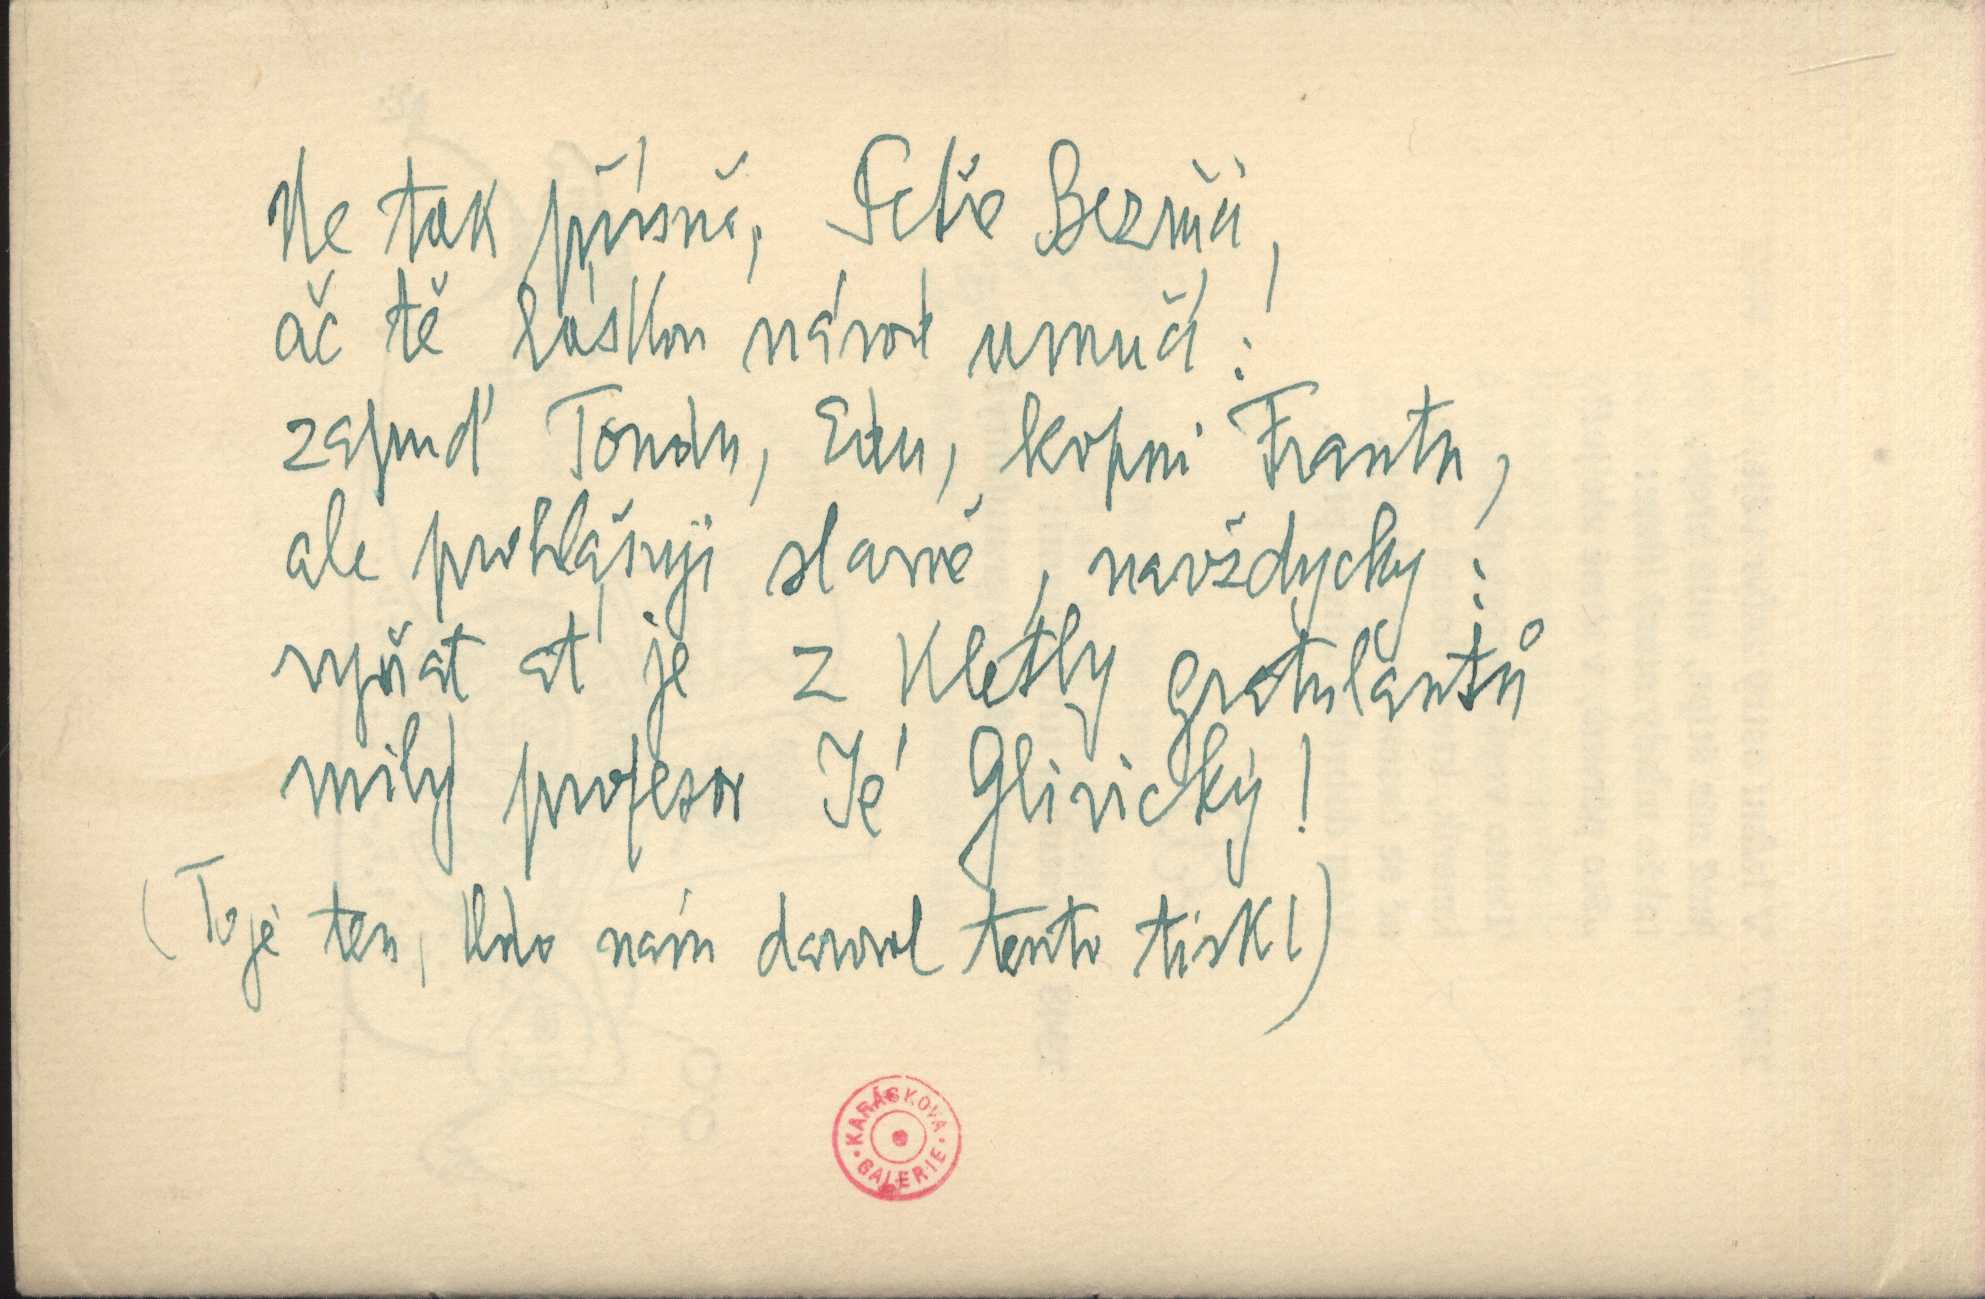 Ne tak přísně, Petře Bezruči,
ač tě láskou národ umučí:
zapuď Tondu, Edu, kopni Frantu,
ale prohlašuji slavně, navždycky:
vyňat ať je z kletby gratulantů
milý profesor Jé Glivický!
(To je ten, kdo nám daroval tento tisk!)
KARÁSKOVA GALERIE